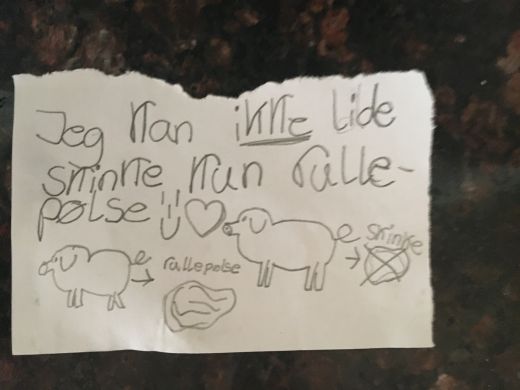 Jeg kan ikke lide
skinke kun rulle-
pølse
skinke
rullepølse